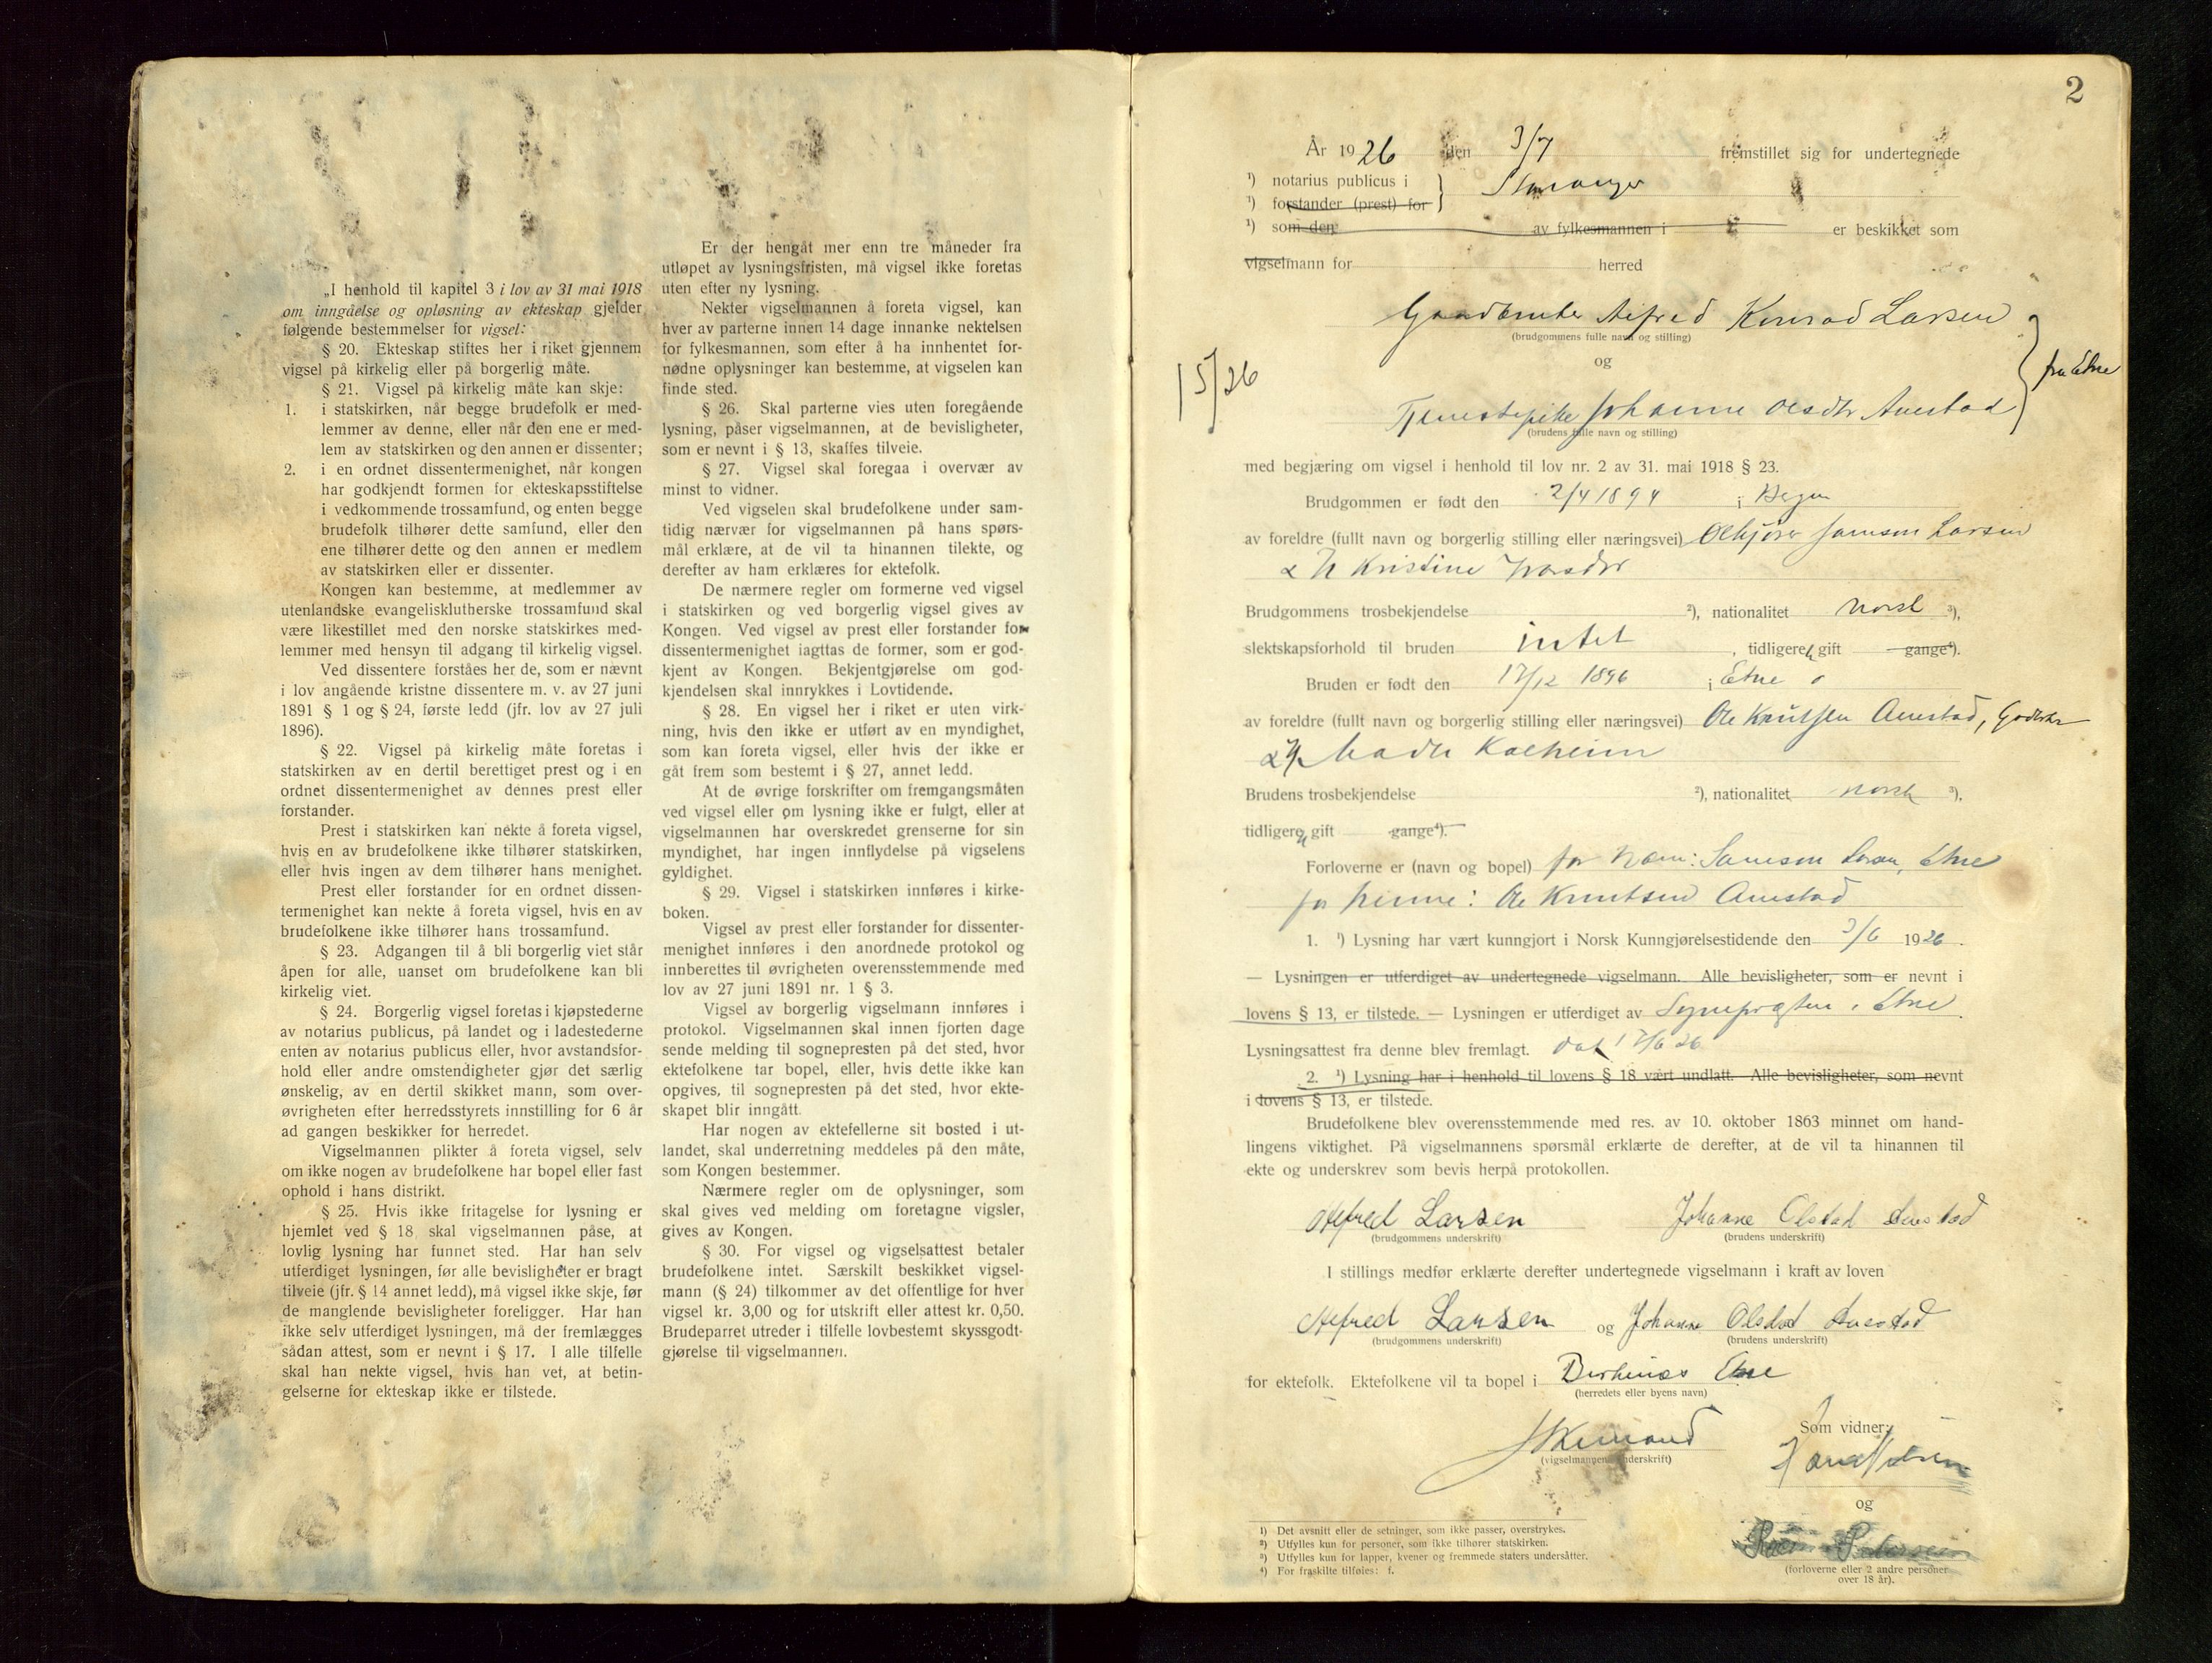 „I henhold til kapitel 3 i lov av 31 mai 1918
om inngåelse og opløsning av ekteskap gjelder
følgende bestemmelser for vigsel:
§ 20. Ekteskap stiftes her i riket gjennem
vigsel på kirkelig eller på borgerlig måte.
§ 21. Vigsel på kirkelig måte kan skje:
1. i statskirken, når begge brudefolk er med-
lemmer av denne, eller når den ene er med-
lem av statskirken og den annen er dissenter;
2. i en ordnet dissentermenighet, når kongen
har godkjendt formen for ekteskapsstiftelse
i vedkommende trossamfund, og enten begge
brudefolk tilhører dette samfund, eller den
ene tilhører dette og den annen er medlem
av statskirken eller er dissenter.
Kongen kan bestemme, at medlemmer av
utenlandske evangelisklutherske trossamfund skal
være likestillet med den norske statskirkes med-
lemmer med hensyn til adgang til kirkelig vigsel.
Ved dissentere forståes her de, som er nævnt
i lov angående kristne dissentere m. v. av 27 juni
1891 § 1 og § 24, første ledd (jfr. lov av 27 juli
1896).
§ 22. Vigsel på kirkelig måte foretas i
statskirken av en dertil berettiget prest og i en
ordnet dissentermenighet av dennes prest eller
forstander.
Prest i statskirken kan nekte å foreta vigsel,
hvis en av brudefolkene ikke tilhører statskirken,
eller hvis ingen av dem tilhører hans menighet.
Prest eller forstander for en ordnet dissen-
termenighet kan nekte å foreta vigsel, hvis en av
brudefolkene ikke tilhører hans trossamfund.
§ 23. Adgangen til å bli borgerlig viet står
åpen for alle, uanset om brudefolkene kan bli
kirkelig viet.
§ 24. Borgerlig vigsel foretas i kjøpstederne
av notarius publicus, på landet og i ladestederne
enten av notarius publicus eller, hvor avstandsfor-
hold eller andre omstendigheter gjør det særlig
ønskelig, av en dertil skikket mann, som over-
øvrigheten efter herredsstyrets innstilling for 6 år
ad gangen beskikker for herredet.
Vigselmannen plikter å foreta vigsel, selv
om ikke nogen av brudefolkene har bopel eller fast
ophold i hans distrikt.
§ 25. Hvis ikke fritagelse for lysning er
hjemlet ved § 18, skal vigselmannen påse, at
lovlig lysning har funnet sted. Har han selv
utferdiget lysningen, før alle bevisligheter er bragt
tilveie (jfr. § 14 annet ledd), må vigsel ikke skje, før
de manglende bevisligheter foreligger. Har han
ikke selv utferdiget lysningen, må der fremlægges
sådan attest, som er nevnt i § 17. I alle tilfelle
skal han nekte vigsel, hvis han vet, at betin-
gelserne for ekteskap ikke er tilstede.
Er der hengåt mer enn tre måneder fra
utløpet av lysningsfristen, må vigsel ikke foretas
uten efter ny lysning.
Nekter vigselmannen å foreta vigsel, kan
hver av parterne innen 14 dage innanke nektelsen
for fylkesmannen, som efter å ha innhentet for-
nødne oplysninger kan bestemme, at vigselen kan
finde sted.
§ 26. Skal parterne vies uten foregående
lysning, påser vigselmannen, at de bevisligheter,
som er nevnt i § 13, skaffes tilveie.
§ 27. Vigsel skal foregaa i overvær av
minst to vidner.
Ved vigselen skal brudefolkene under sam-
tidig nærvær for vigselmannen på hans spørs-
mål erklære, at de vil ta hinannen tilekte, og
derefter av ham erklæres for ektefolk.
De nærmere regler om formerne ved vigsel
i statskirken og ved borgerlig vigsel gives av
Kongen. Ved vigsel av prest eller forstander for
dissentermenighet iagttas de former, som er god-
kjent av Kongen. Bekjentgjørelse om god-
kjendelsen skal innrykkes i Lovtidende.
§ 28. En vigsel her i riket er uten virk-
ning, hvis den ikke er utført av en myndighet,
som kan foreta vigsel, eller hvis der ikke er
gåt frem som bestemt i § 27, annet ledd.
At de øvrige forskrifter om fremgangsmåten
ved vigsel eller om lysning ikke er fulgt, eller at
vigselmannen har overskredet grenserne for sin
myndighet, har ingen innflydelse på vigselens
gyldighet.
§ 29. Vigsel i statskirken innføres i kirke-
boken.
Vigsel av prest eller forstander for dissenter-
menighet innføres i den anordnede protokol og
innberettes til øvrigheten overensstemmende med
lov av 27 juni 1891 nr. 1 § 3.
Vigsel av borgerlig vigselmann innføres i
protokol. Vigselmannen skal innen fjorten dage
sende melding til sognepresten på det sted, hvor
ektefolkene tar bopel, eller, hvis dette ikke kan
opgives, til sognepresten på det sted, hvor ekte-
skapet blir inngått.
Har nogen av ektefellerne sit bosted i ut-
landet, skal underretning meddeles på den måte,
som Kongen bestemmer.
Nærmere regler om de oplysninger, som
skal gives ved melding om foretagne vigsler,
gives av Kongen.
§ 30. For vigsel og vigselsattest betaler
brudefolkene intet. Særskilt beskikket vigsel-
mann (§ 24) tilkommer av det offentlige for hver
vigsel kr. 3,00 og for utskrift eller attest kr. 0,50.
Brudeparret utreder i tilfelle lovbestemt skyssgodt-
gjørelse til vigselmannen.
2
År 1926 den 3/7 fremstillet sig for undertegnede
¹) notarius publicus i Stavanger
¹) forstander (prest) for
¹) som den av fylkesmannen i er beskikket som
vigselmann for herred
Gaardbruker Alfred Konrad Larsen
(brudgommens fulle navn og stilling)
og
fra Etne
15/26
Tjenestepike Johanne Olsdtr Austad
(brudens fulle navn og stilling)
med begjæring om vigsel i henhold til lov nr. 2 av 31. mai 1918 § 23.
Brudgommen er født den 2/4 1894 i Bergen
av foreldre (fullt navn og borgerlig stilling eller næringsvei) Samson Larsen
& H Kristine
Brudgommens trosbekjendelse ²), nationalitet norsk ³),
slektskapsforhold til bruden intet, tidligere gift gange⁴).
Bruden er født den 17/12 1896 i Etne
av foreldre (fullt navn og borgerlig stilling eller næringsvei) Ole Knutsen Austad,
&
Brudens trosbekjendelse ²), nationalitet norsk ³),
tidligere gift gange⁴).
Forloverne er (navn og bopel) for ham: Samson Larsen, Etne
for henne: Ole Knutsen Austad
1. ¹) Lysning har vært kunngjort i Norsk Kunngjørelsestidende den 3/6 1926.
— Lysningen er utferdiget av undertegnede vigselmann. Alle bevisligheter, som er nevnt i
lovens § 13, er tilstede. — Lysningen er utferdiget av Sognepresten i Etne.
Lysningsattest fra denne blev fremlagt. dat 17/6 26
2. ¹) Lysning har i henhold til lovens § 18 vært undlatt. Alle bevisligheter, som nevnt
i lovens § 13, er tilstede.
Brudefolkene blev overensstemmende med res. av 10. oktober 1863 minnet om hand-
lingens viktighet. På vigselmannens spørsmål erklærte de derefter, at de vil ta hinannen til
ekte og underskrev som bevis herpå protokollen.
Alfred Larsen Johanne Olsdad Austad
(brudgommens underskrift) (brudens underskrift)
I stillings medfør erklærte derefter undertegnede vigselmann i kraft av loven
Alfred Larsen og Johanne Olsdad Austad
(brudgommens underskrift) (brudens underskrift)
for ektefolk. Ektefolkene vil ta bopel i Etne
(herredets eller byens navn)
Som vidner:
(vigselmannens underskrift)
og
Petersen
(forloverne eller 2 andre personer
over 18 år).
¹) Det avsnitt eller de setninger, som ikke passer, overstrykes.
²) Utfylles kun for personer, som ikke tilhører statskirken.
³) Utfylles kun for lapper, kvener og fremmede staters undersåtter.
⁴) For fraskilte tilføies: f.